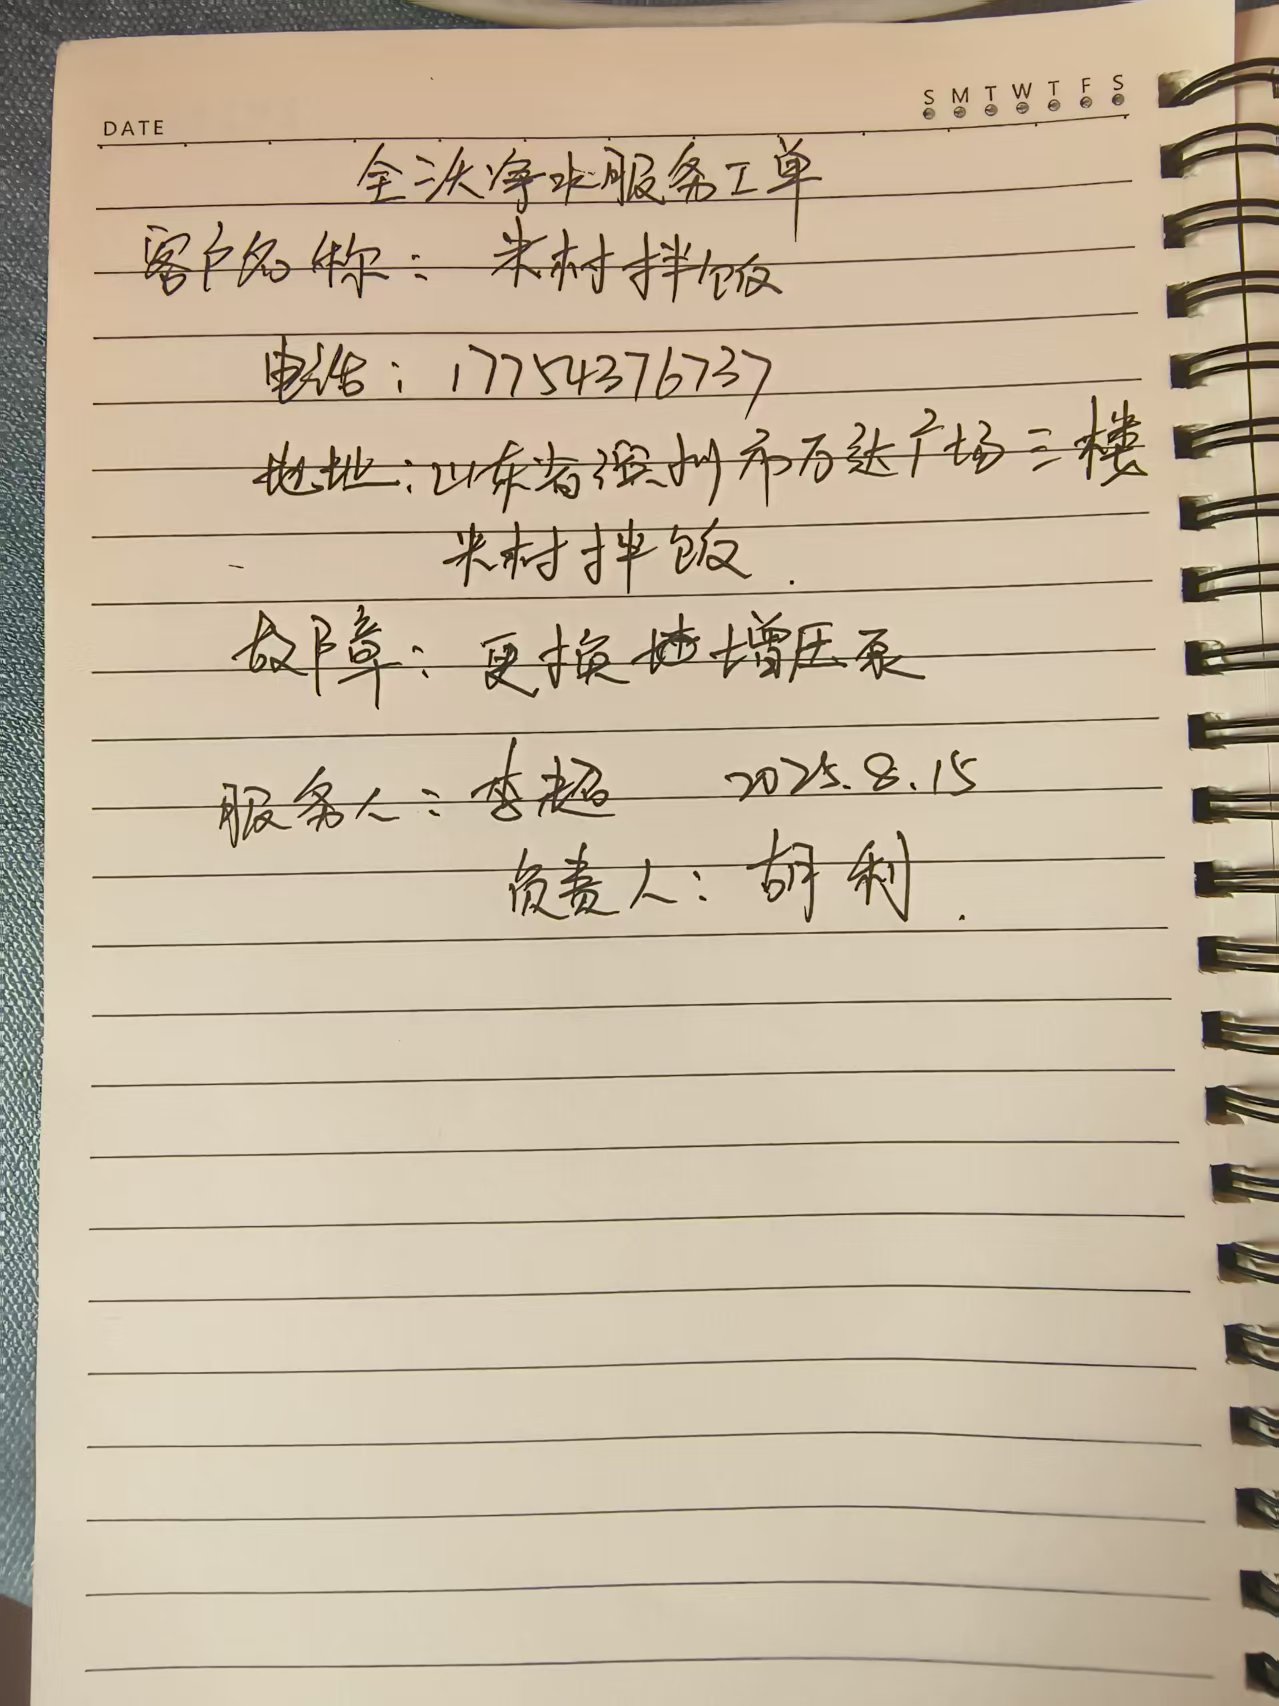 DATE
S M T W T F S
净水服务工单
客户名称：米村拌饭
电话：17754376737
地址：山东省滨州市万达广场三楼
米村拌饭.
故障：更换 增压泵
服务人：李超 2025.8.15
负责人：胡利.